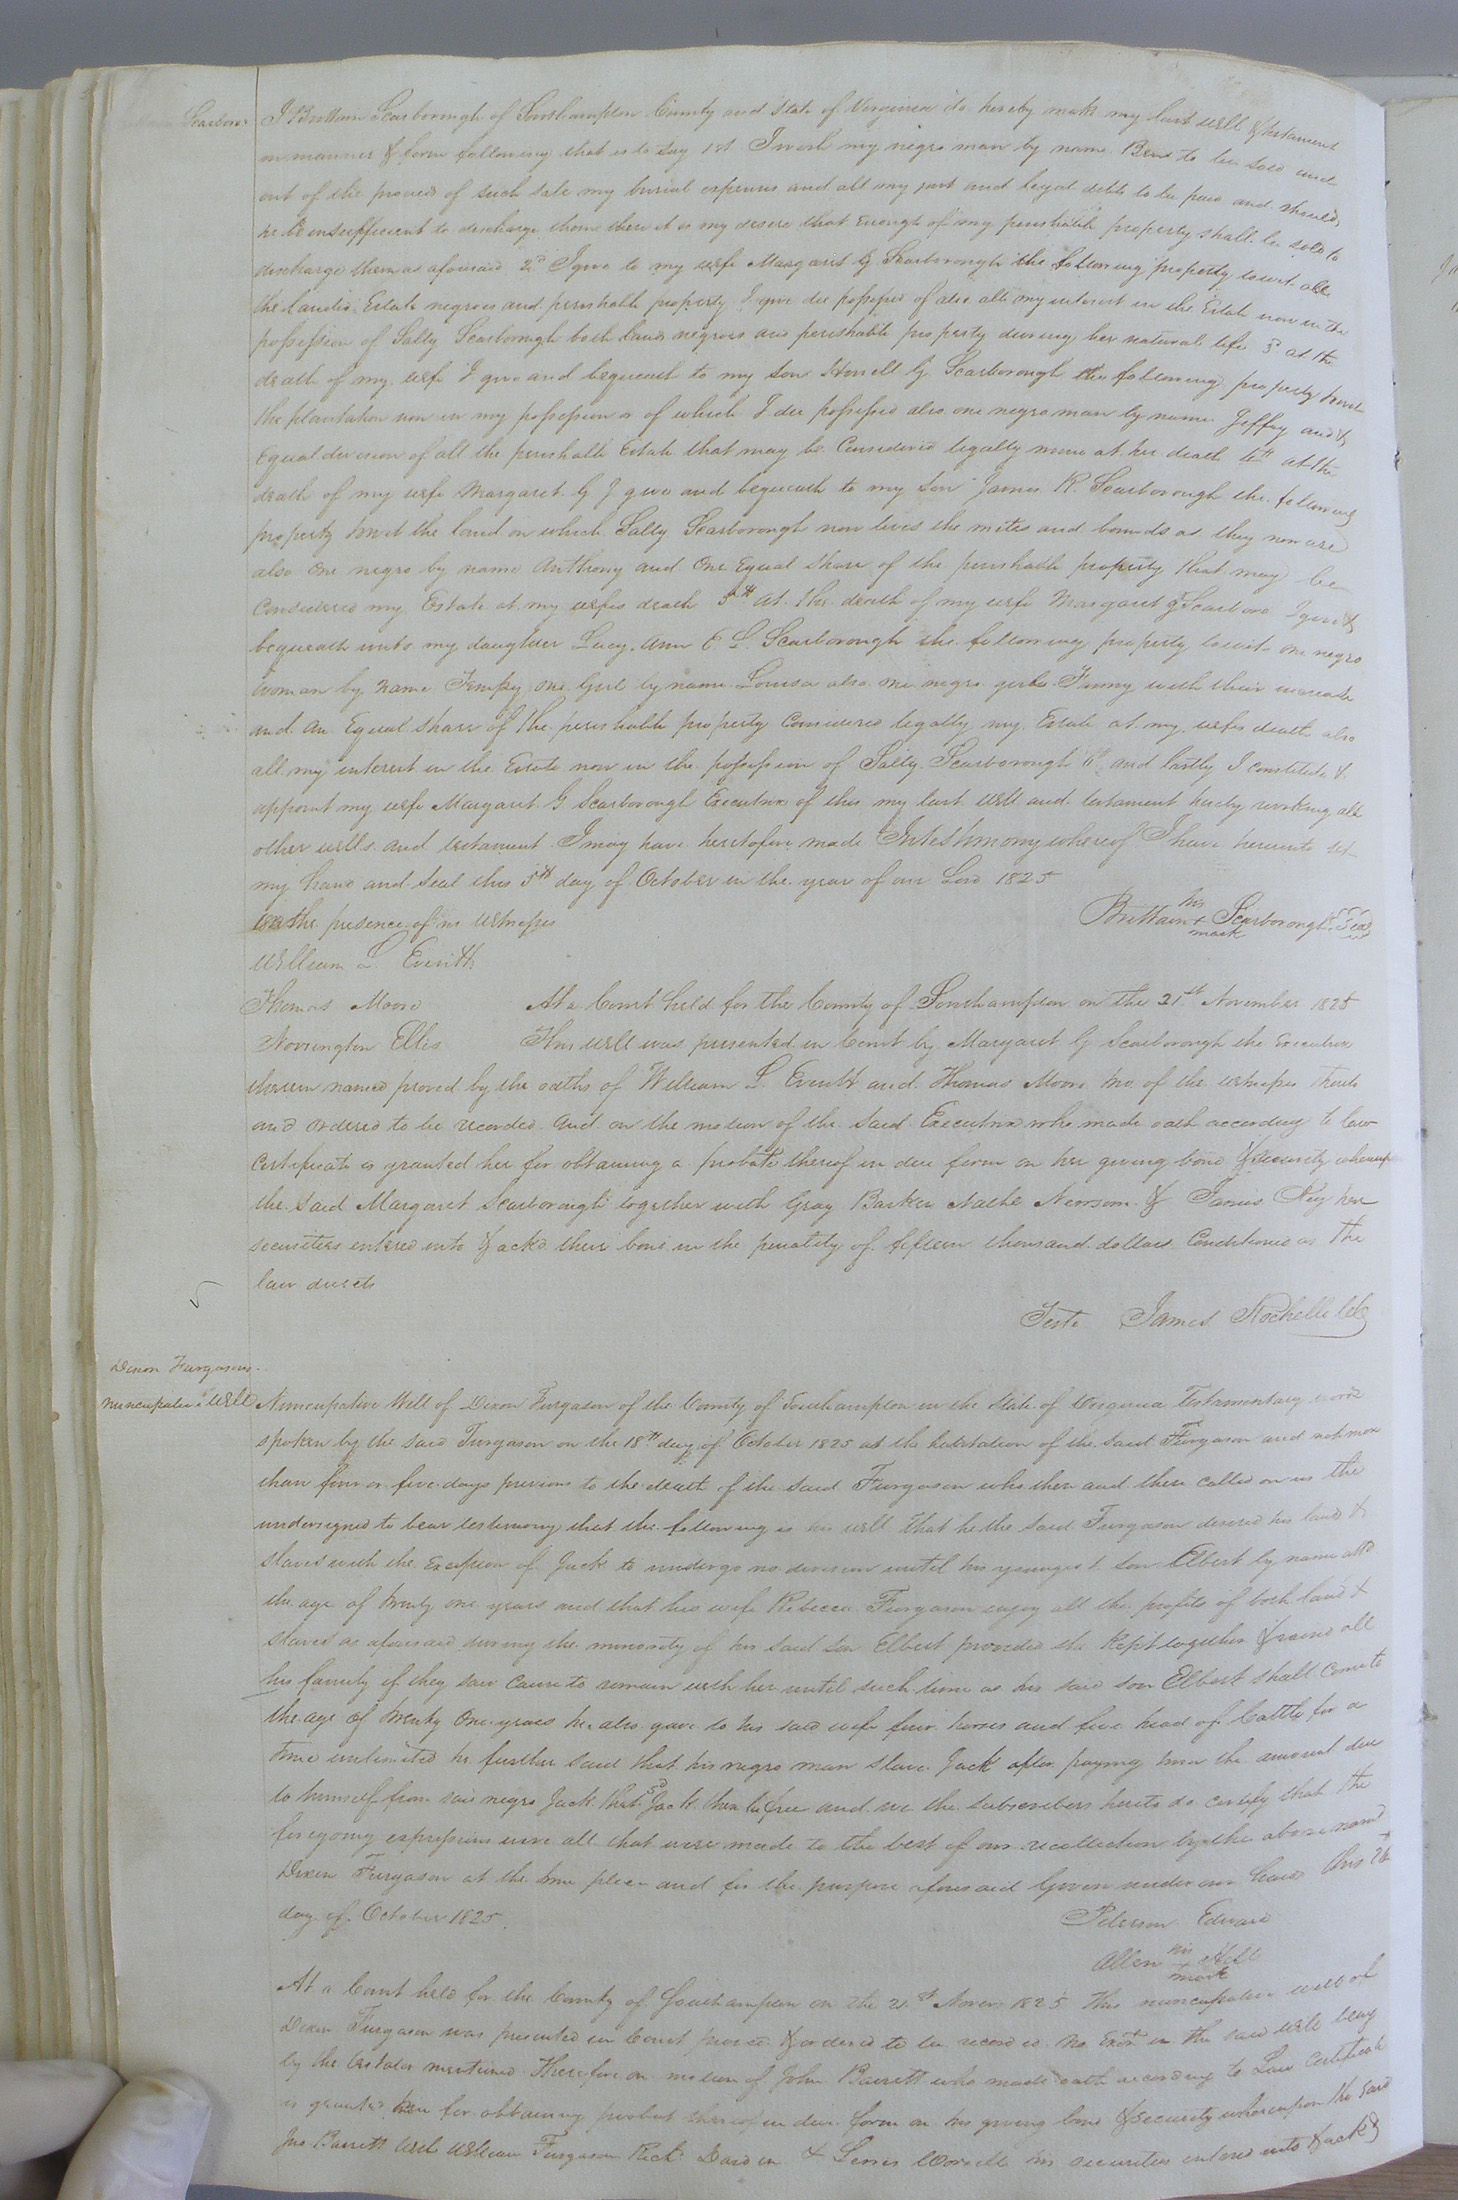 Scarboro
I Brittain Scarborough of Southampton County and State of Virginia do hereby make my last will & testament
in manner & form following that is to say 1st I wish my negro man by name Ben to be sold and
out of the proceeds of such sale my burial expenses and all my just and legal debts to be paid and should
he be insufficient to discharge them then it is my desire that enough of my perishable property shall be sold to
discharge them as aforesaid 2d I give to my wife Margaret G Scarborough the following property towit all
the landed Estate negroes and perishable property I now die possessed of also all my interest in the Estate now in the
possession of Sally Scarborough both land negroes and perishable property during her natural life 3d at the
death of my wife I give and bequeath to my son Howell G. Scarborough the following property towit
the plantation now in my possession or of which I die possessed also one negro man by name Jeffry and &
Equal division of all the perishable Estate that may be Considered legally mine at her death 4th at the
death of my wife Margaret G I give and bequeath to my son James R. Scarborough the following
property towit the land on which Sally Scarborough now lives the metes and bounds as they now are
also One negro by name Anthony and One Equal share of the perishable property that may be
Considered my Estate at my wifes death 5th at the death of my wife Margaret G Scarboro I give &
bequeath unto my daughter Lucy Ann E. L. Scarborough the following property towit one negro
woman by name Tempy one Girl by name Louisa also one negro girl Fanny with their increase
and an Equal share of the perishable property Considered legally my Estate at my wifes death also
all my interest in the Estate now in the possession of Sally Scarborough 6th and lastly I constitute &
appoint my wife Margaret G Scarborough Executrix of this my last will and testament hereby revoking all
other wills and testament I may have heretofore made In testimony whereof I have hereunto set
my hand and seal this 5th day of October in the year of our Lord 1825
In the presence of us witnesses
Brittain his + mark Scarborough Seal
William L. Everitt
Thomas Moore
At a Court held for the County of Southampton on the 21st November 1825
Norrington Ellis
This will was presented in Court by Margaret G Scarborough the Executrix
therein named proved by the oaths of William L. Everitt and Thomas Moore two of the witnesses thereto
and ordered to be recorded and on the motion of the said Executrix who made oath according to law
Certificate is granted her for obtaining a probate thereof in due form on her giving bond & security whereupon
the said Margaret Scarborough together with Gray Barker Nathl Newsom & James her
securities entered into & ackd their bond in the penality of fifteen thousand dollars Conditioned as the
law directs
Teste James Rochelle Clk
Dixon Furgasons
nuncupative will
Nuncupative Will of Dixon Furgason of the County of Southampton in the State of Virginia Testamentary words
spoken by the said Furgason on the 18th day of October 1825 at the habitation of the said Furgason and not more
than four or five days previous to the death of the said Furgason who then and there called on us the
undersigned to bear testimony that the following is his will that he the said Furgason desired his land &
slaves with the exception of Jack to undergo no division until his youngest son Elbert by name attd
the age of twenty one years and that his wife Rebecca Furgason enjoy all the profits of both land &
slaves as aforesaid during the minority of his said son Elbert provided she kept together & raised all
his family if they saw cause to remain with her until such time as his said son Elbert shall come to
the age of twenty One years he also gave to his said wife four horses and five head of Cattle for a
time unlimited he further said that his negro man slave Jack after paying him the amount due
to himself from said negro Jack that sd Jack then be free and we the subscribers hereto do certify that the
foregoing expressions were all that were made to the best of our recollection by the above named
Dixon Furgason at the time place and for the purpose aforesaid Given under our hand this
day of October 1825
Peterson Edward
Allen his + mark
At a Court held for the County of Southampton on the 21st Novem 1825 This nuncupative will of
Dixon Furgason was presented in Court proved & ordered to be recorded no Exor in the said will being
by the testator mentioned Therefore on motion of John Barrett who made oath according to Law Certificate
is granted him for obtaining probat thereof in due form on his giving bond & security whereupon the said
Jno Barrett with William Furgason Richd Darden & Lewis Worrell his securities entered into & ackd